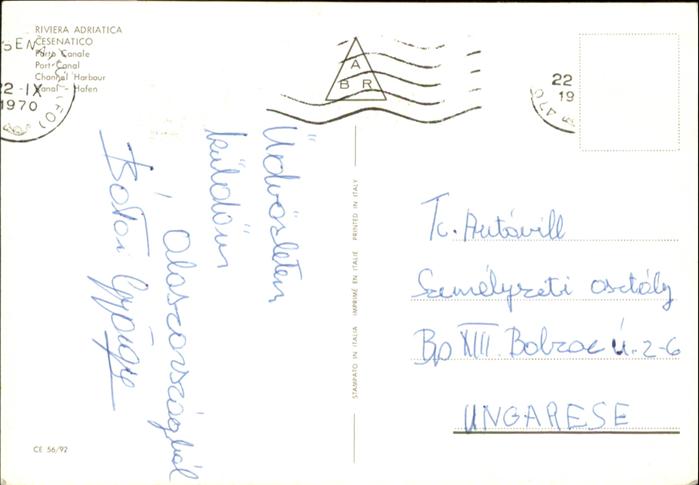 RIVIERA ADRIATICA
CESENATICO
Porto Canale
Port-Canal
Channel Harbour
Kanal - Hafen
22-IX
1970
A
B R
22
19
Üdvözletem
küldöm
Olaszországból
György
STAMPATO IN ITALIA IMPRIMÉ EN ITALIE PRINTED IN ITALY
Tc. Autóvill
Személyzeti osztály
Bp XIII. Bobzac u. 2-6
UNGARESE
CE 56/92